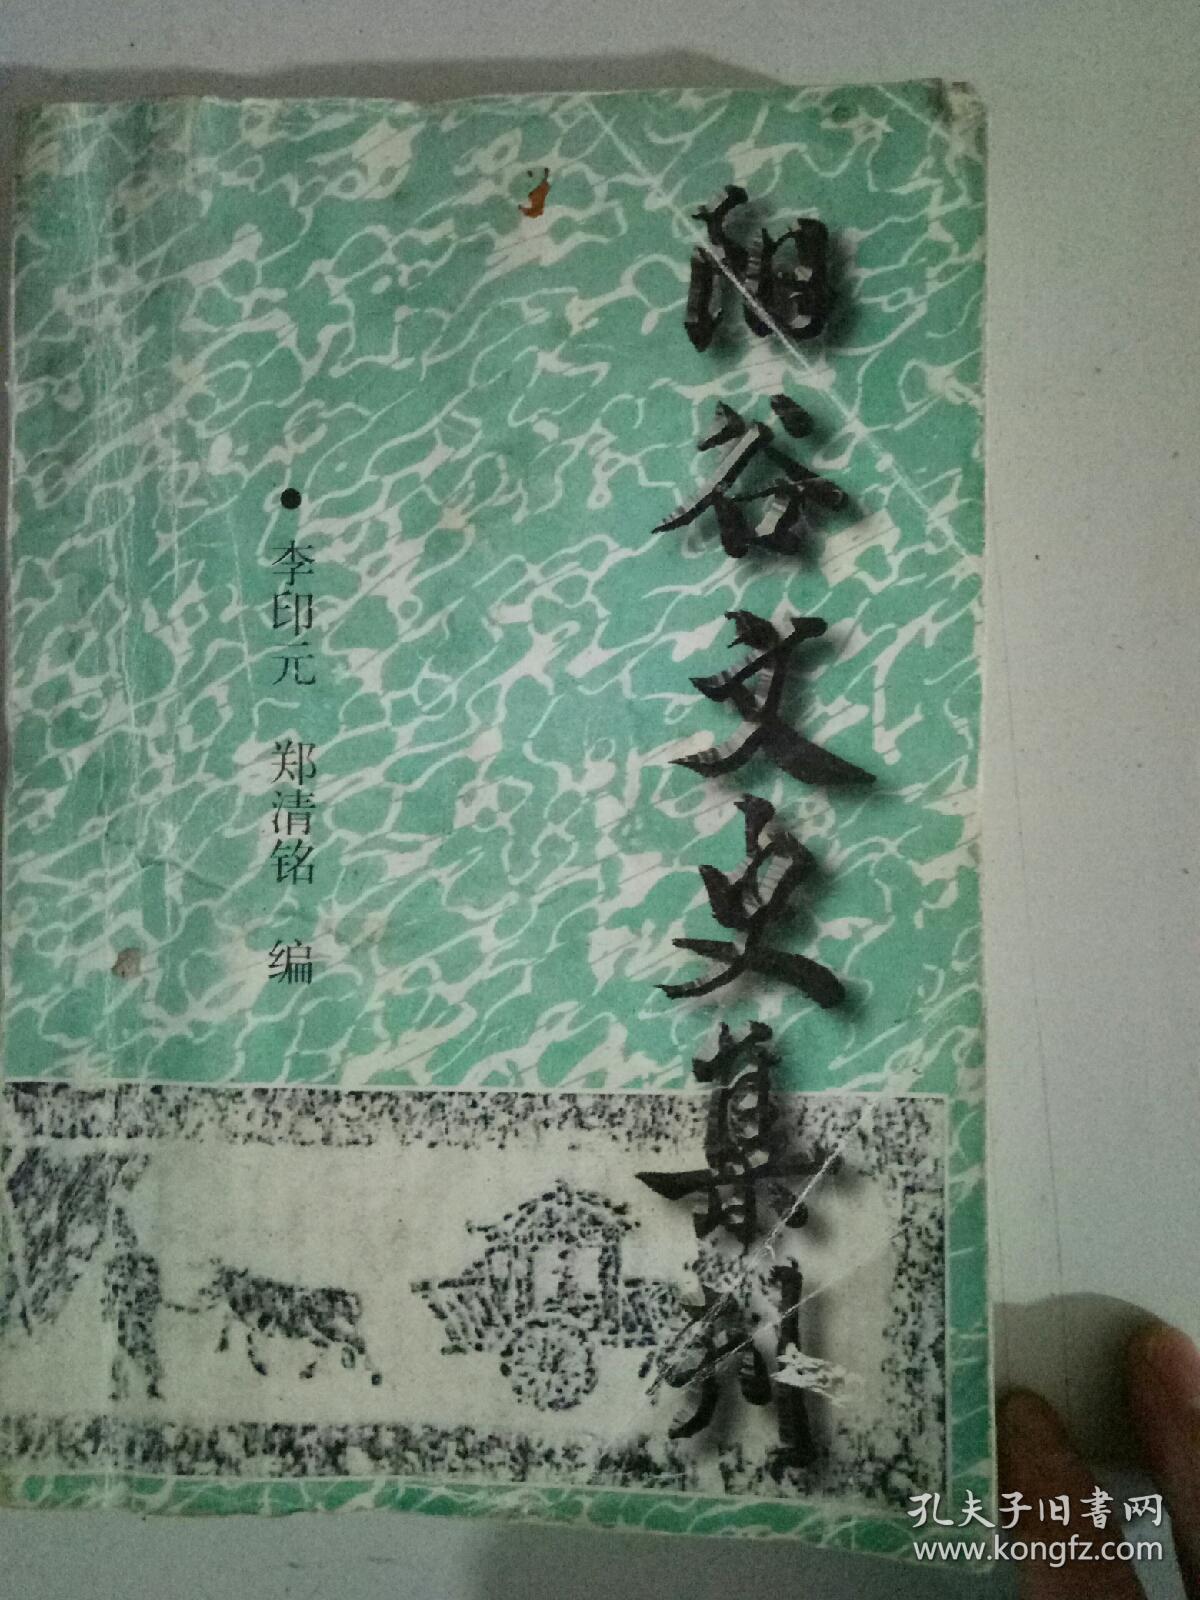 阳谷文史集刊
●李印元 郑清铭 编
孔夫子旧書网
www.kongfz.com